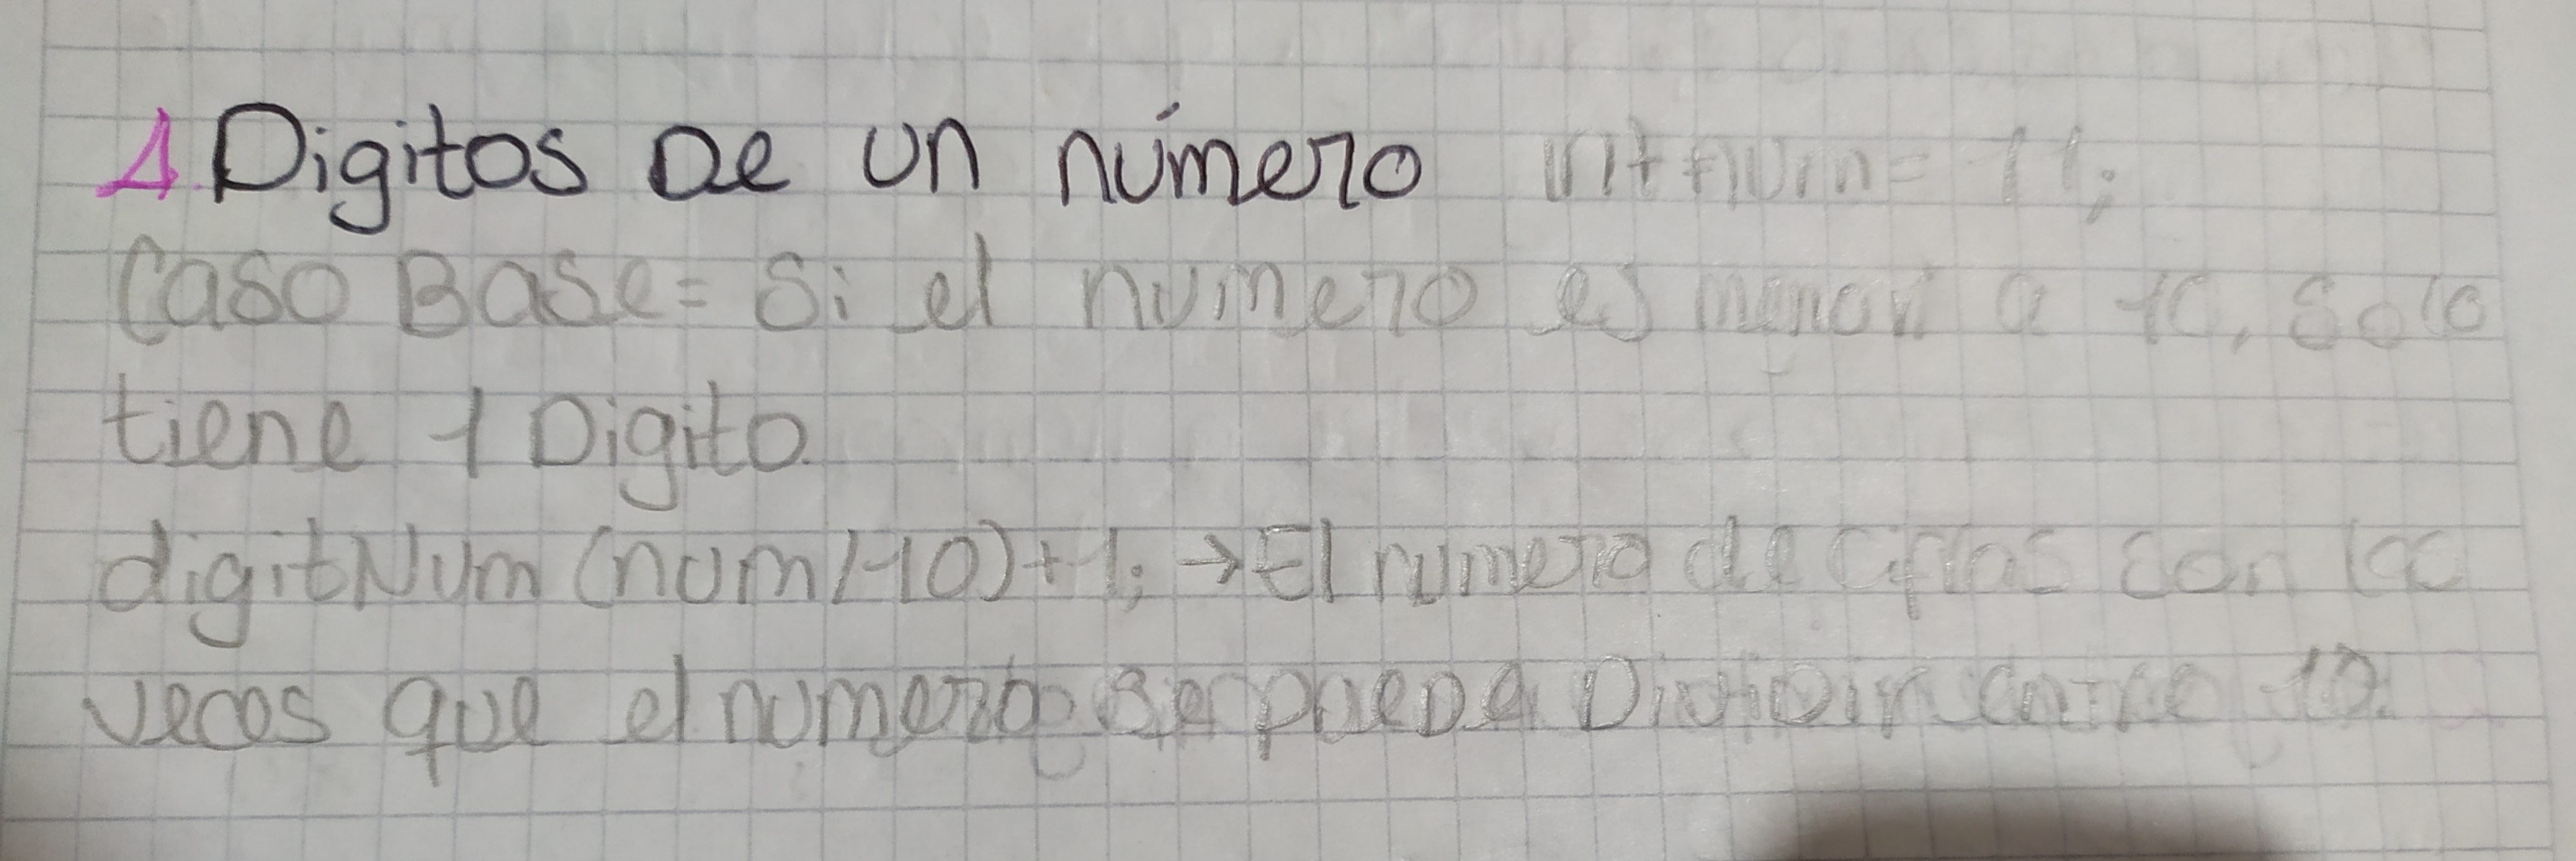 1. Digitos De un número int num= 11;
Caso Base= Si el numero es menor a 10, Solo
tiene 1 Digito.
digitNum (num/10)+1; →El numero de cifras son las
veces que el numero se puede Dividir entre 10.